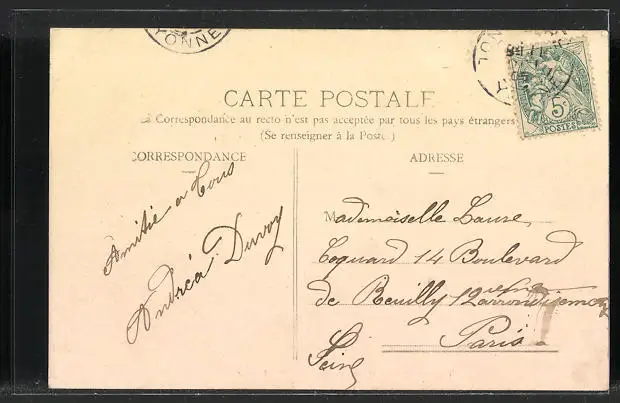 YONNE
CARTE POSTALE
La Correspondance au recto n'est pas acceptée par tous les pays étrangers
(Se renseigner à la Poste)
CORRESPONDANCE
ADRESSE
Amitié a tous
Andréa Duvoy
Mademoiselle Laure
Coquard 14 Boulevard
de Reuilly 12 arrondisement
Paris
Seine
5c
POSTES